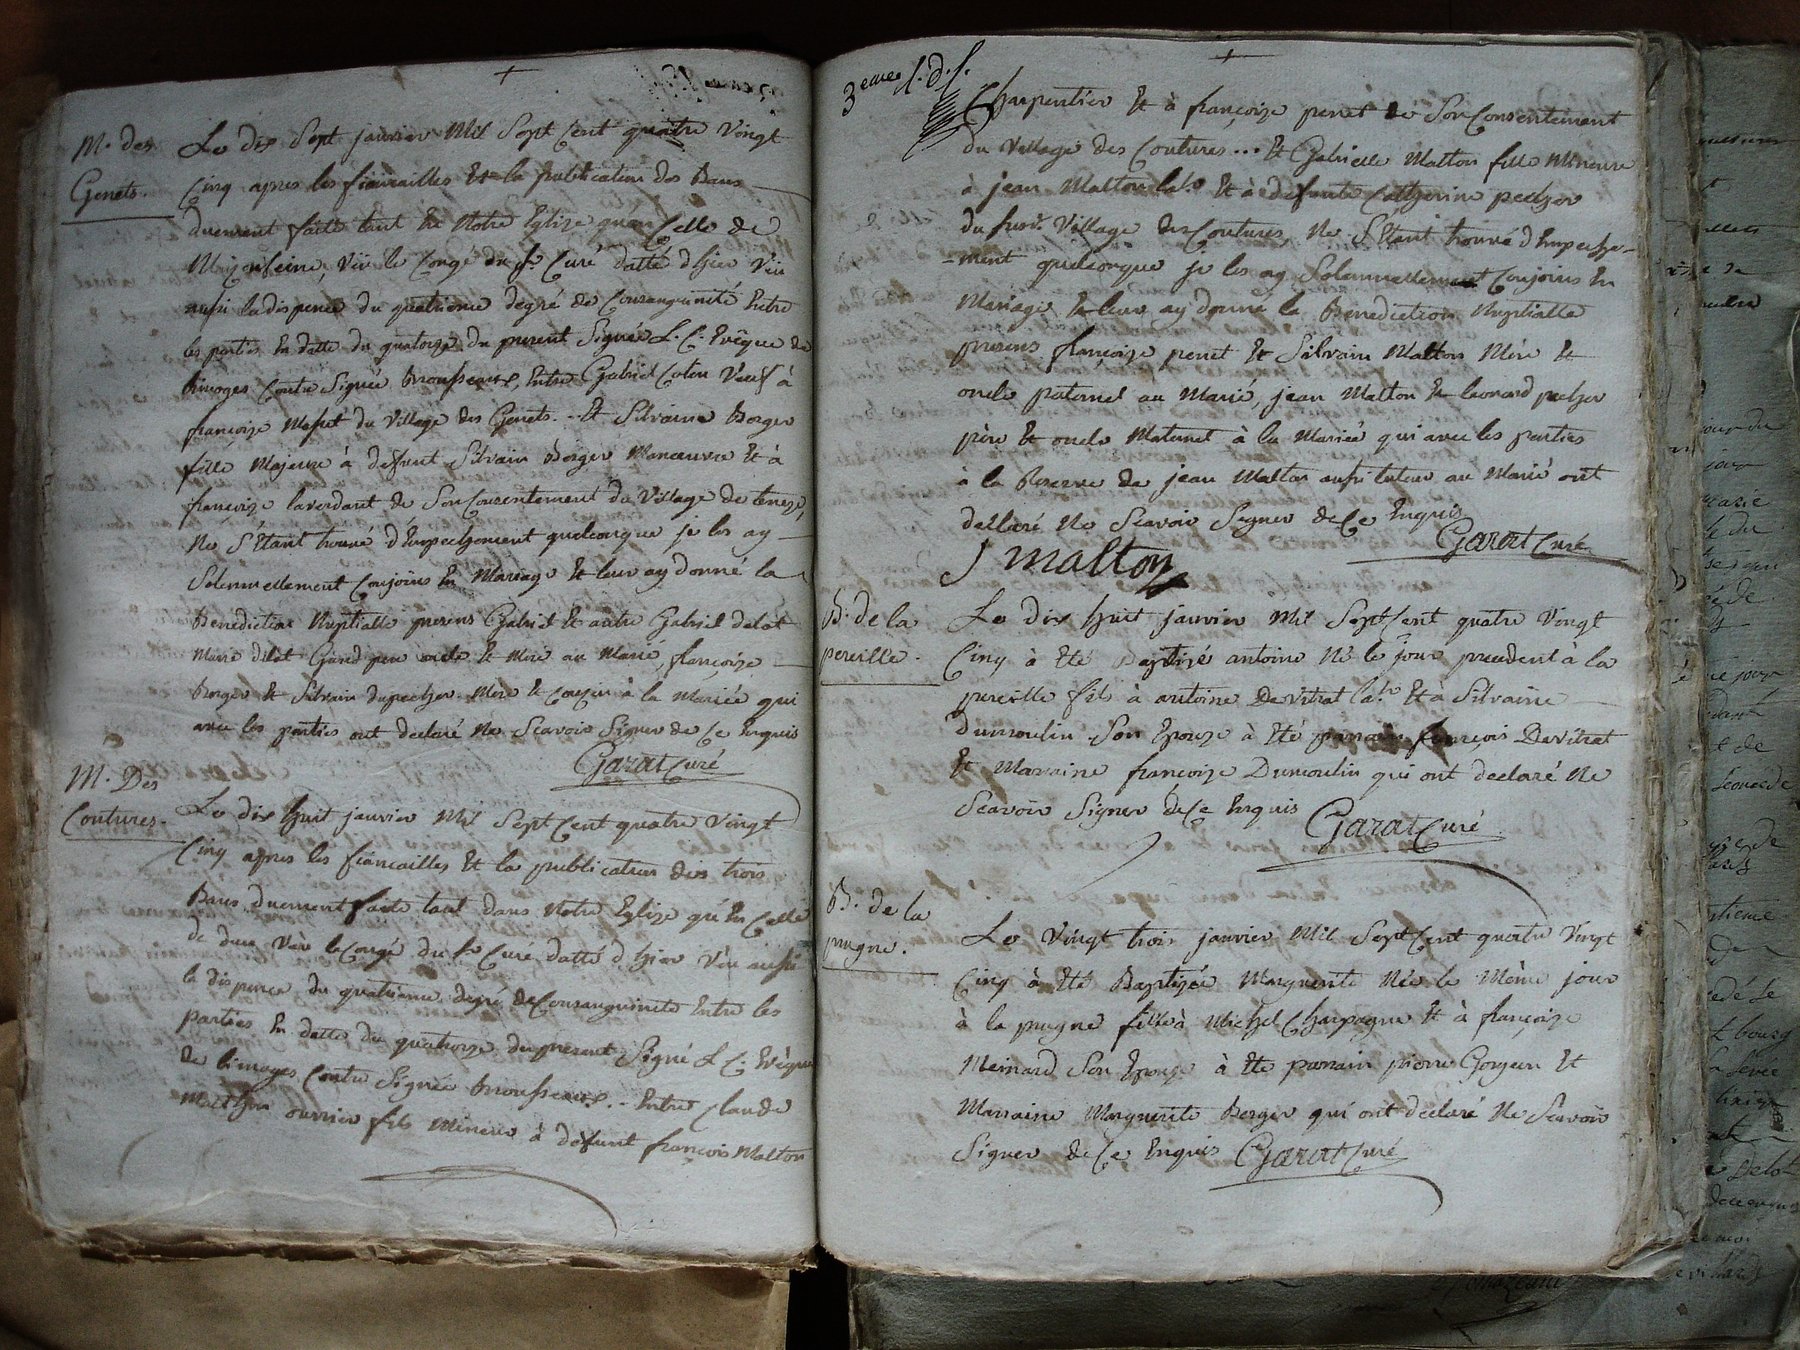 M. des
Genets.
Le dix Sept janvier Mil Sept Cent quatre Vingt
Cinq apres les fiancailles Et la publication des Bans
duement faite tant En Notre Eglize qu'en Celle de
Vû le Congé du Sr Curé datté dhier Vûe
aussi la dispence du quatrieme degré de Consanguinité Entre
les parties En datte du quatorze du present Signée L. C. Evêque de
limoges Contre Signée brousseaux, Entre Gabriel Coton Veuf à
françoize du Village des Genets... Et Silvaine Berger
fille Majeure à defunt Silvain Berger Manœuvre Et à
françoize laverdant de Son Consentement du Village de
Ne S'Etant trouvé d'Empechement quelconque je les ay
Solemnellement Conjoins En Mariage Et leur ay donné la
Benediction Nuptialle presens Gabriel Et autre Gabriel delot
Marie dilot Grand pere oncle Et Mere au Marié, françoize
berger Et Silvain dupecher Mere Et Cousin à la Mariée qui
avec les parties ont declaré Ne Scavoir Signer de Ce Enquis
Garat Curé
M. Des
Coutures.
Le dix huit janvier Mil Sept Cent quatre Vingt
Cinq apres les fiancailles Et la publication des trois
Bans duement faite tant dans Notre Eglize qu'En Celle
de Vû le Congé du Sr Curé datté dhier Vûe aussi
la dispence du quatrieme degré de Consanguinité Entre les
parties En datte du quatorze du present Signé L. C. Evêque
de limoges Contre Signée brousseaux... Entre Claude
Malton ouvrier fils Mineur à defunt françois Malton
3eme
Charpentier Et à françoize peret de Son Consentement
du Village des Coutures... Et Gabrielle Malton fille Mineure
à jean Malton labr Et à defunte Catherine pecher
du susd. Village des Coutures, Ne S'Etant trouvé d'Empeche-
-ment quelconque je les ay Solemnellement Conjoins En
Mariage Et leur ay donné la Benediction Nuptialle
presens françoize peret Et Silvain Malton Mére Et
oncle paternel au Marié, jean Malton Et leonard pecher
père Et oncle Maternel à la Mariée qui avec les parties
à la Reserve de jean Malton aussi tuteur au Marié ont
declaré Ne Scavoir Signer de Ce Enquis
Garat Curé
J malton
B. de la
pereille.
Le dix huit janvier Mil Sept Cent quatre Vingt
Cinq à Eté Baptizé antoine Né le jour precedent à la
pereille fils à antoine Devitrat labr Et à Silvaine
Dumoulin Son Epouze à Eté parrain françois Devitrat
Et Marraine françoize Dumoulin qui ont declaré Ne
Scavoir Signer de Ce Enquis
Garat Curé
B. de la
prugne.
Le Vingt trois janvier Mil Sept Cent quatre Vingt
Cinq à Eté Baptizée Marguerite Née le Même jour
à la prugne fille à Michel Champagne Et à françoize
Meinard Son Epouze à Eté parrain pierre Gorgeon Et
Marraine Marguerite Berger qui ont declaré Ne Scavoir
Signer de Ce Enquis Garat Curé